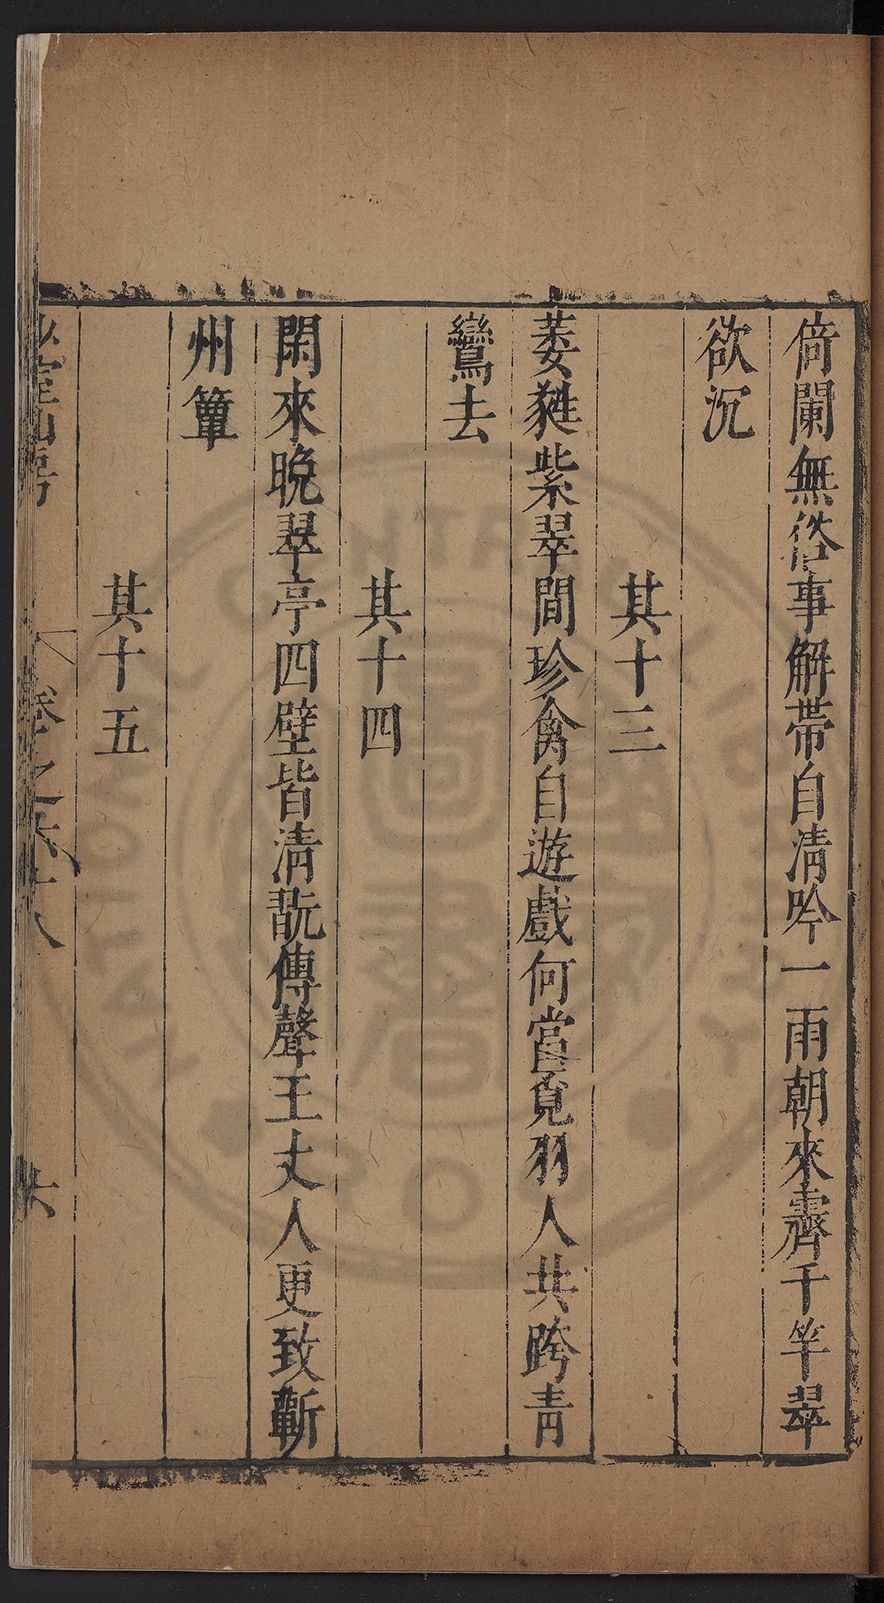 倚闌無俗事解帶自清吟一雨朝來霽千竿翠
欲沉
其十三
萎蕤紫翠間珍禽自遊戲何當覓羽人共跨青
鸞去
其十四
閑來晚翠亭四壁皆清翫傳聲王丈人更致蘄
州簟
其十五